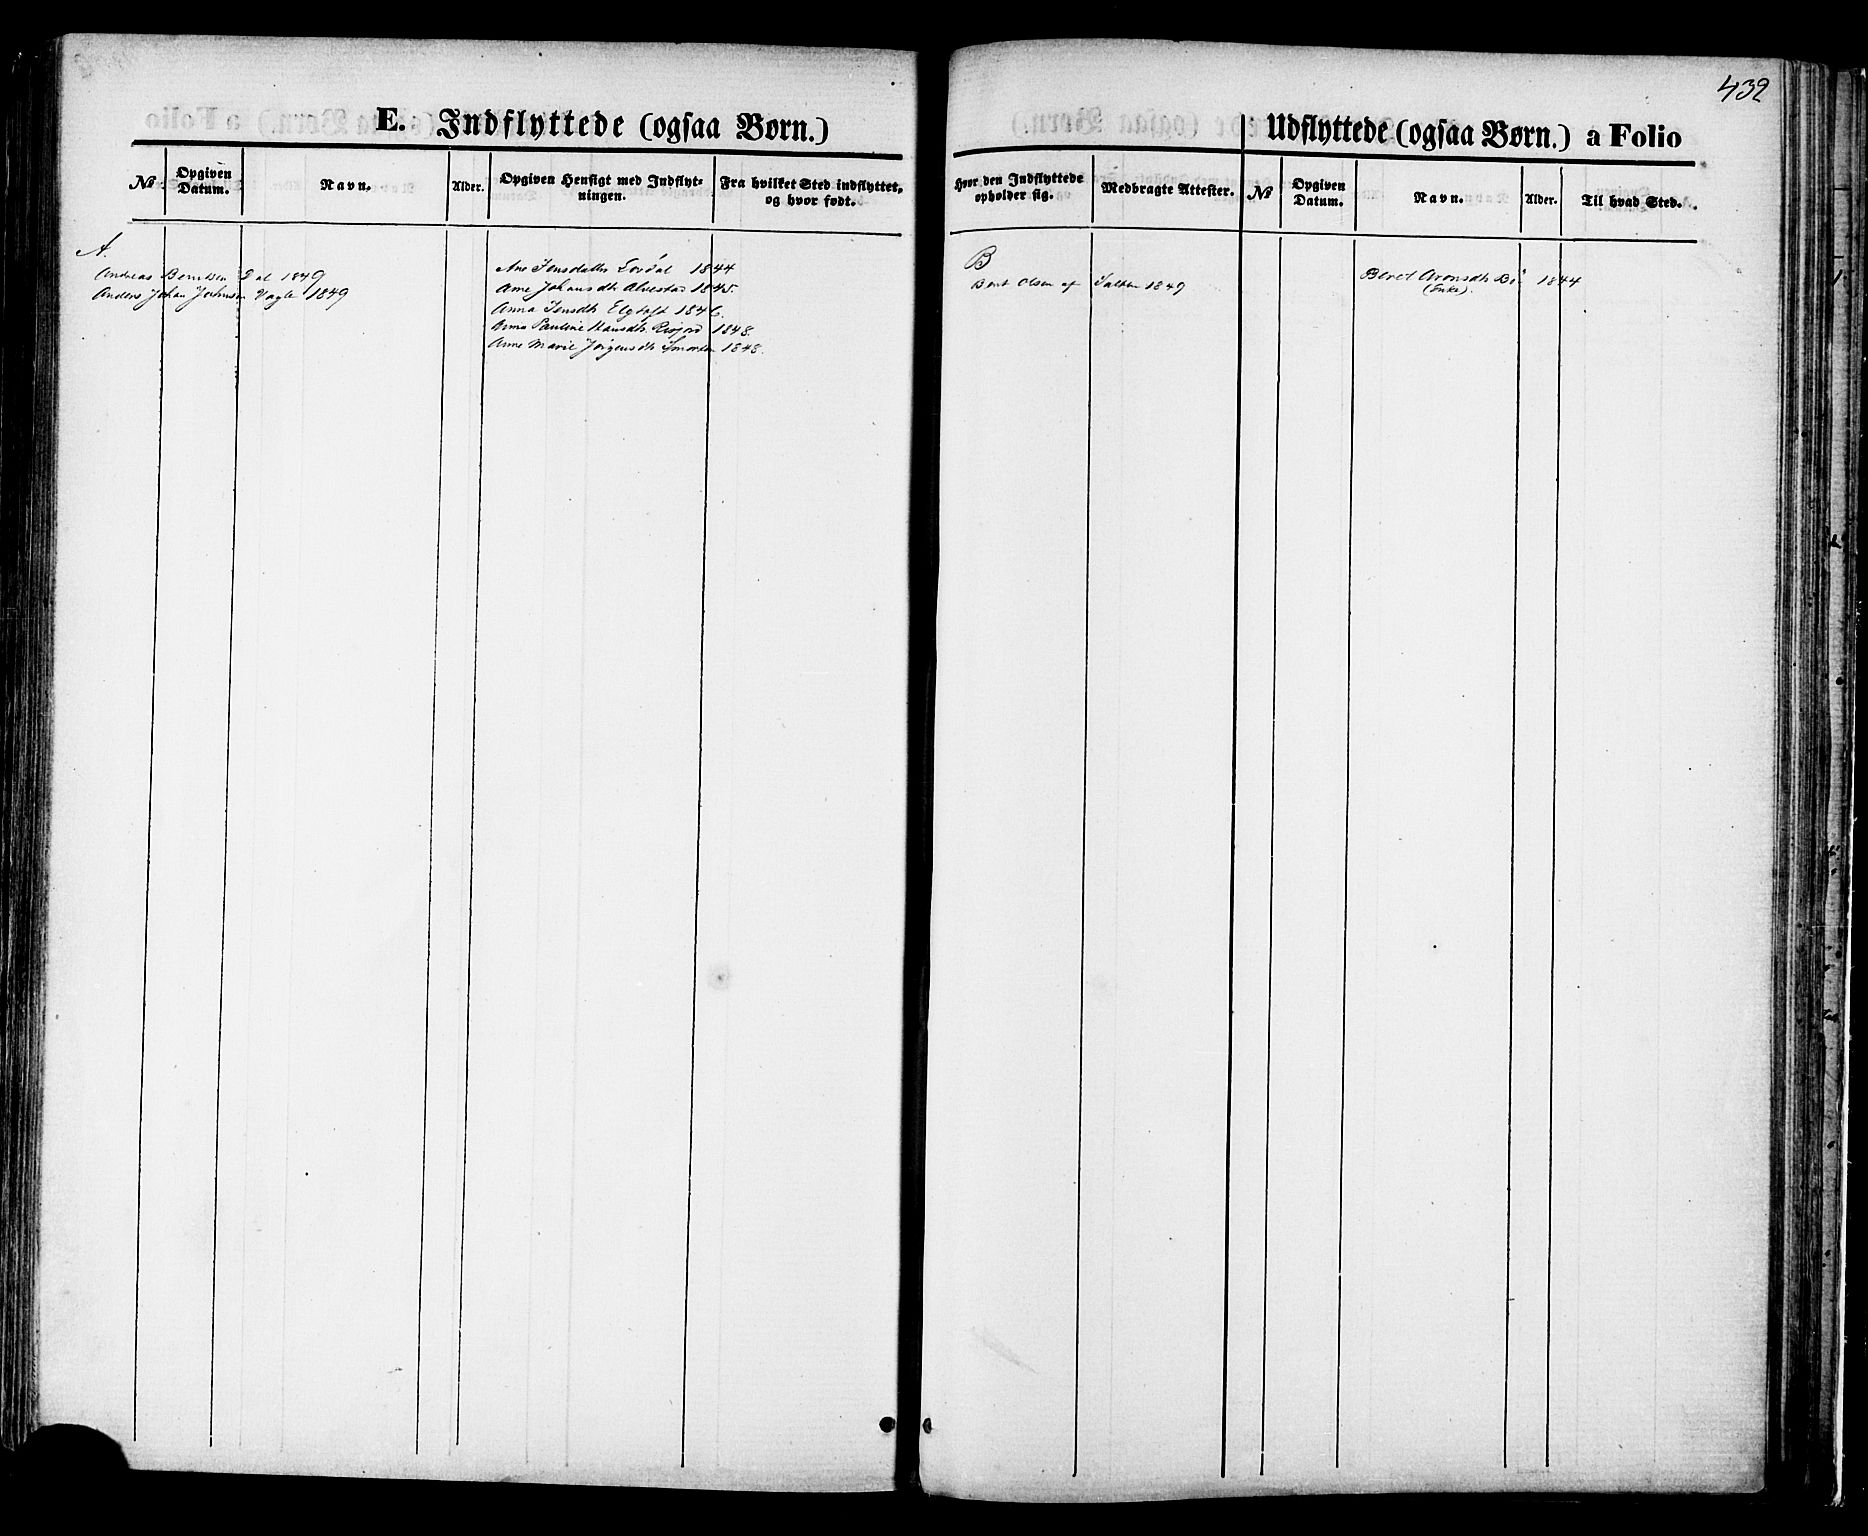 432
E. Indflyttede (ogsaa Børn.)
№
Opgiven Datum.
Navn.
Alder.
Opgiven Hensigt med Indflyt-
ningen.
Fra hvilket Sted indflyttet,
og hvor født.
A.
Andreas Berntsen Dal 1849
Anders Johan Johnsen Vagle 1849
Ane Jensdatter 1844
Ane Johansdtr Alvestad 1845.
Anna Jensdtr Elgtoft 1846.
Anna Pauline Hansdtr Risjord 1848.
Anne Marie Jørgensdtr Smorten 1848.
Udflyttede (ogsaa Børn.) a Folio
Hvor den Indflyttede
opholder sig.
Medbragte Attester.
№
Opgiven
Datum.
Navn.
Alder.
Til hvad Sted.
B
Bernt Olsen af Salten 1849
Beret Aronsdtr Bø 1844
(Enke).